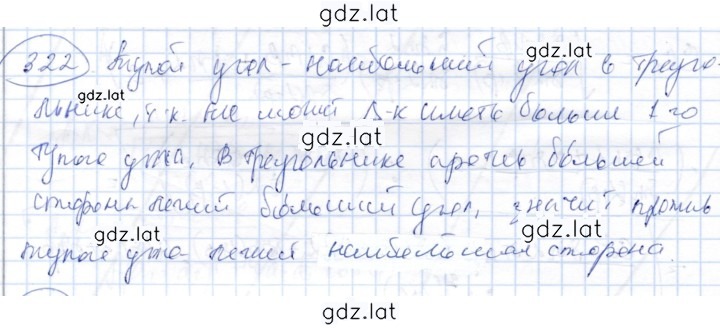 gdz.lat
322 Тупой угол - наибольший угол в треуго-
gdz.lat
gdz.lat
льнике, т.к. не может Δ-к иметь больше 1-го
gdz.lat
тупого угла. В треугольнике против большей
стороны лежит больший угол, значит против
gdz.lat
gdz.lat
тупого угла лежит наибольшая сторона.
gdz.lat